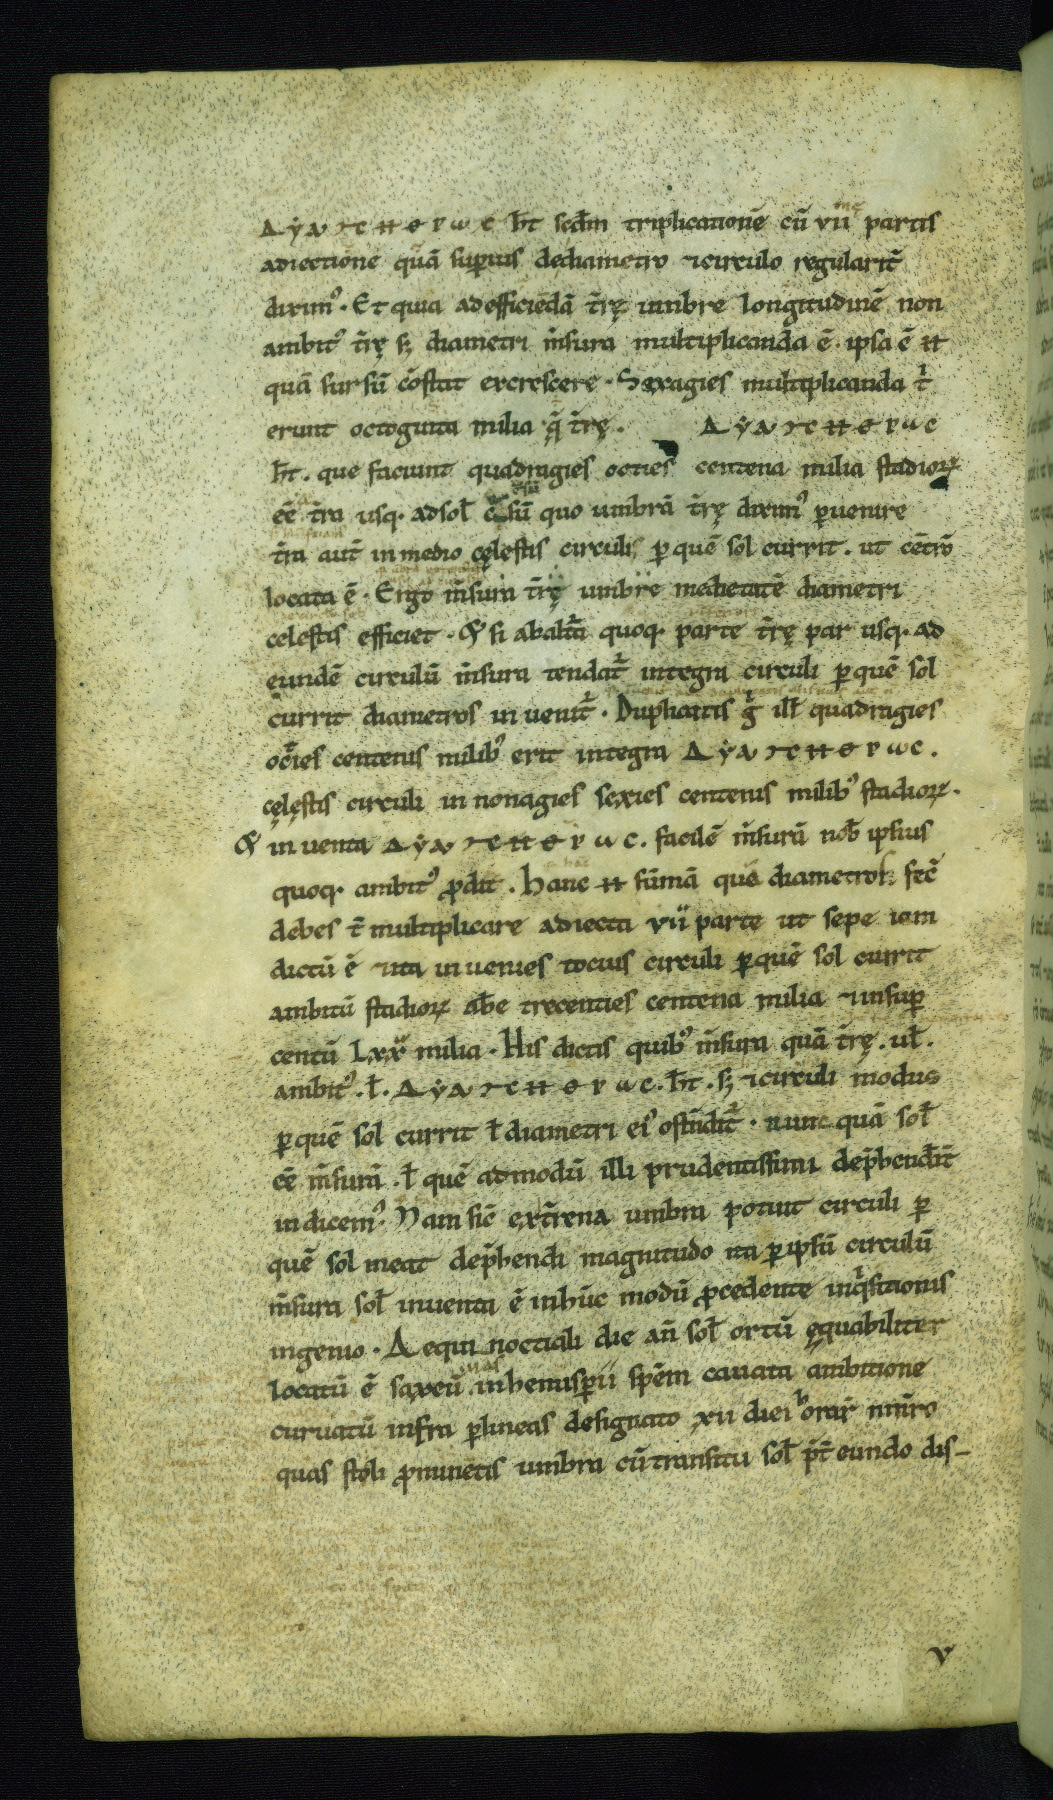 ΔyΑΜΕΤΗΕΡωC h̄t sedm̄ triplicationē cū vii me partis
adiectione quā superius dediametro ⁊circulo regularit̄
dixim᷒. Et quia adefficiēdā t̄rę umbre longitudinē non
ambit᷒ t̄rę sꝫ diametri m̄sura multiplicanda ē. ipsa ē H
quā sursū cōstat excrescere. Sexagies multiplicanda t̄
erunt octoginta milia q̄ t̄rę.
h̄t. que faciunt quadragies octies centena milia stadioꝝ
eē t̄ra usq. adsol̄ c̄sū quo umbrā t̄rę dixim᷒ ꝑuenire
t̄ra aut̄ inmedio cęlestis circuli, ꝑquē sol currit. ut cētrō
locata ē. Ergo m̄sura t̄rę umbre medietatē diametri
celestis efficiet. Qd si abalt̄a quoq. parte t̄rę par usq. ad
eundē circulū m̄sura tendat̄ integra circuli ꝑquē sol
currit diametros inuenit̄. Duplicatis g̊ ill̄ quadragies
octies centenis milib᷒ erit integra
cęlęstis circuli in nonagies sexies centenis milib᷒ stadioꝝ.
Qd inuenta facilē m̄surā nob̄ ipsius
quoq. ambit᷒ ꝓdit. Hanc H sūmā quę diametroh fec̄
debes t̄ multiplicare adiecta vii parte ut sepe iom
dictū ē ⁊ita inuenies tocius circuli ꝑquē sol currit
ambitū stadioꝝ ab̄e trecenties centena milia ⁊insuꝑ
centū Lxx milia. His dictis quib᷒ m̄sura quā t̄rę. ul̄.
ambit᷒. l̄. h̄t. sꝫ ⁊circuli modus
ꝑquē sol currit l̄ diametri ei᷒ ostēdit̄. nunc quā sol̄
eē m̄surā. l̄ quē admodū illi prudentissimi dep̄hend̄it
indicem᷒. Nam sic̄ ext̄rena umbra potuit circuli ꝑ
quē sol meat dep̄hendi magnitudo ita ꝑipsū circulū
m̄sura sol̄ inuenta ē inhūc modū ꝓcedente inqsitionis
ingenio. Aequinoctiali die an̄ sol̄ ortū ęquabiliter
locatū ē saxeū uas inhemisꝑii spēm cauata ambitione
curuatū infra ꝑlineas designato xii diei horar̄ nūro
quas stoli ꝓminetis umbra cū transitu sol̄ p̄t eundo dis-
v